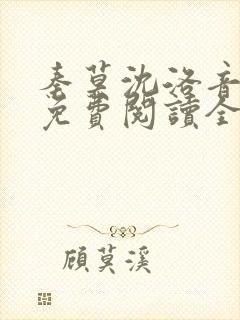 秦莫沈洛音
免費閱讀全
顧莫溪